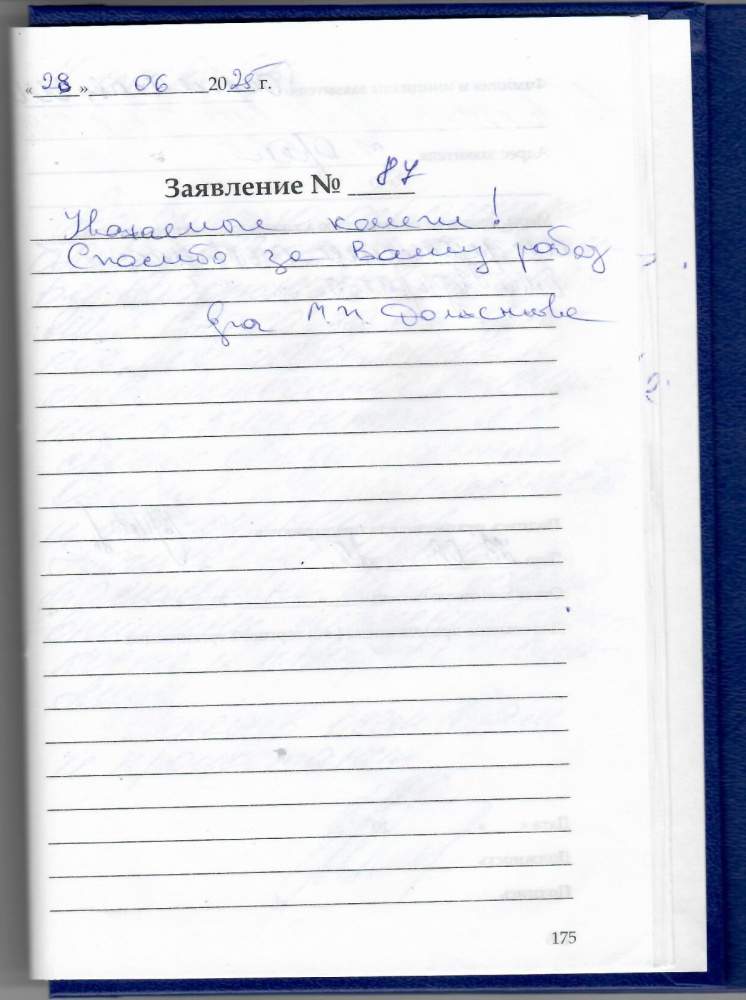 «28» 06 2025 г.
Заявление № 87
Уважаемые колеги!
Спасибо за Вашу работу
М.И.
175